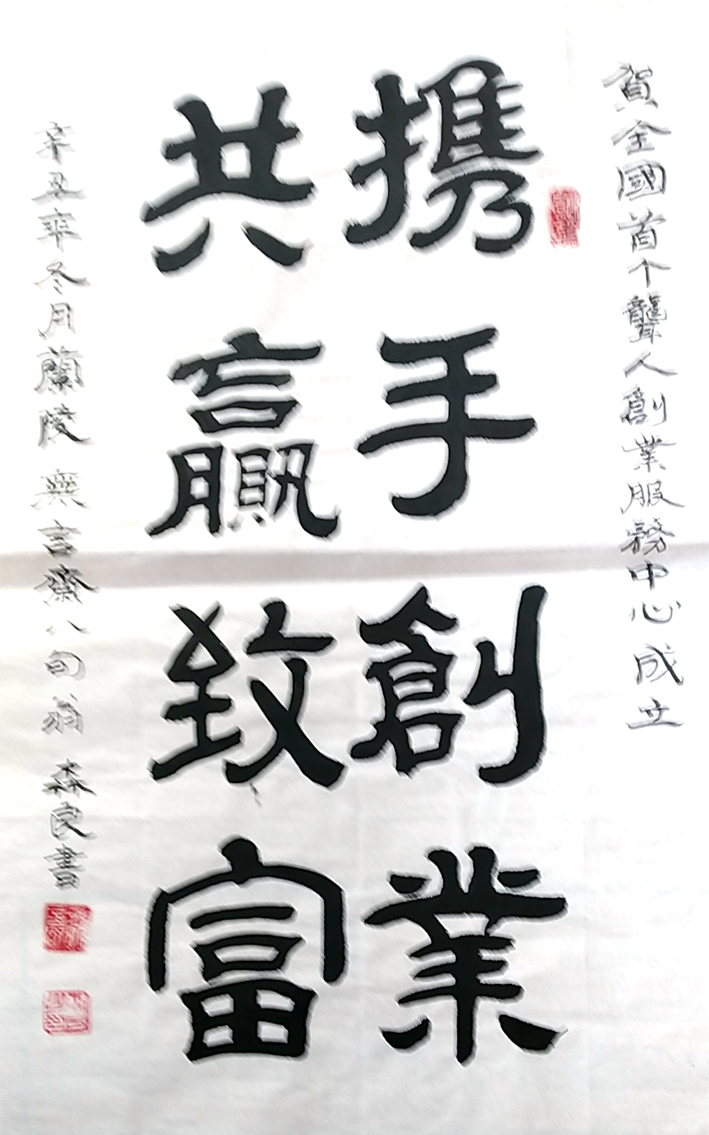 賀全國首个聾人創業服務中心成立
携手創業
共贏致富
辛丑年冬月蘭陵 無言齋八旬翁 森良書